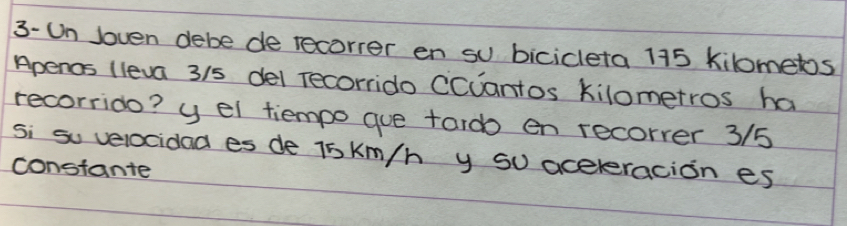 3- Un Joven debe de recorrer en su bicicleta 175 Kilometos
Apenas lleva 3/5 del recorrido ¿Cúantos Kilometros ha
recorrido? y el tiempo que tardo en recorrer 3/5
si su velocidad es de 75 Km/h y su aceleración es
constante